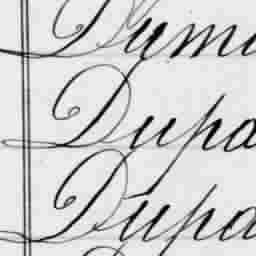 Dym
Dupa
Dupa